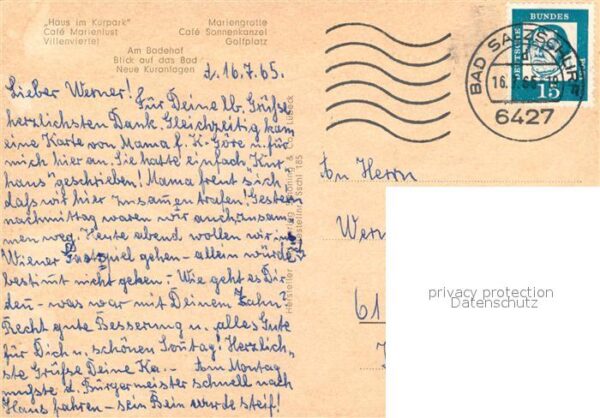 „Haus im Kurpark"
Café Marienlust
Villenviertel
Mariengrotte
Café Sonnenkanzel
Golfplatz
Am Badehof
Blick auf das Bad
Neue Kuranlagen
16.7.65.
Lieber Werner! Für Deine lb. Grüße
herzlichsten Dank. Gleichzeitig kam
eine Karte von Mama f. K. Göre u. für
mich hier an. Sie hatte einfach „Kur
haus" geschrieben! Mama freut sich
daß wir hier zusammen trafen! Gestern
nachmittag waren wir auch zusam
men weg. Heute abend wollen wir
Wiener Gastspiel gehen - allein würde
bestimmt nicht gehen. - Wie geht es Dir
denn - was war mit Deinem Zahn?
Recht gute Besserung u. alles Gute
für Dich u. schönen Sonntag! Herzlich
ste Grüße Deine - Am Montag
mußte d. Bürgermeister schnell nach
Haus fahren - sein Bein wurde steif!
Hersteller
Lübeck
Bestellnr. Sschl 185
DEUTSCHE BUNDESPOST
15
BAD SALZSCHLIRF
16.7.65
6427
An Herrn
Wern
61
privacy protection
Datenschutz